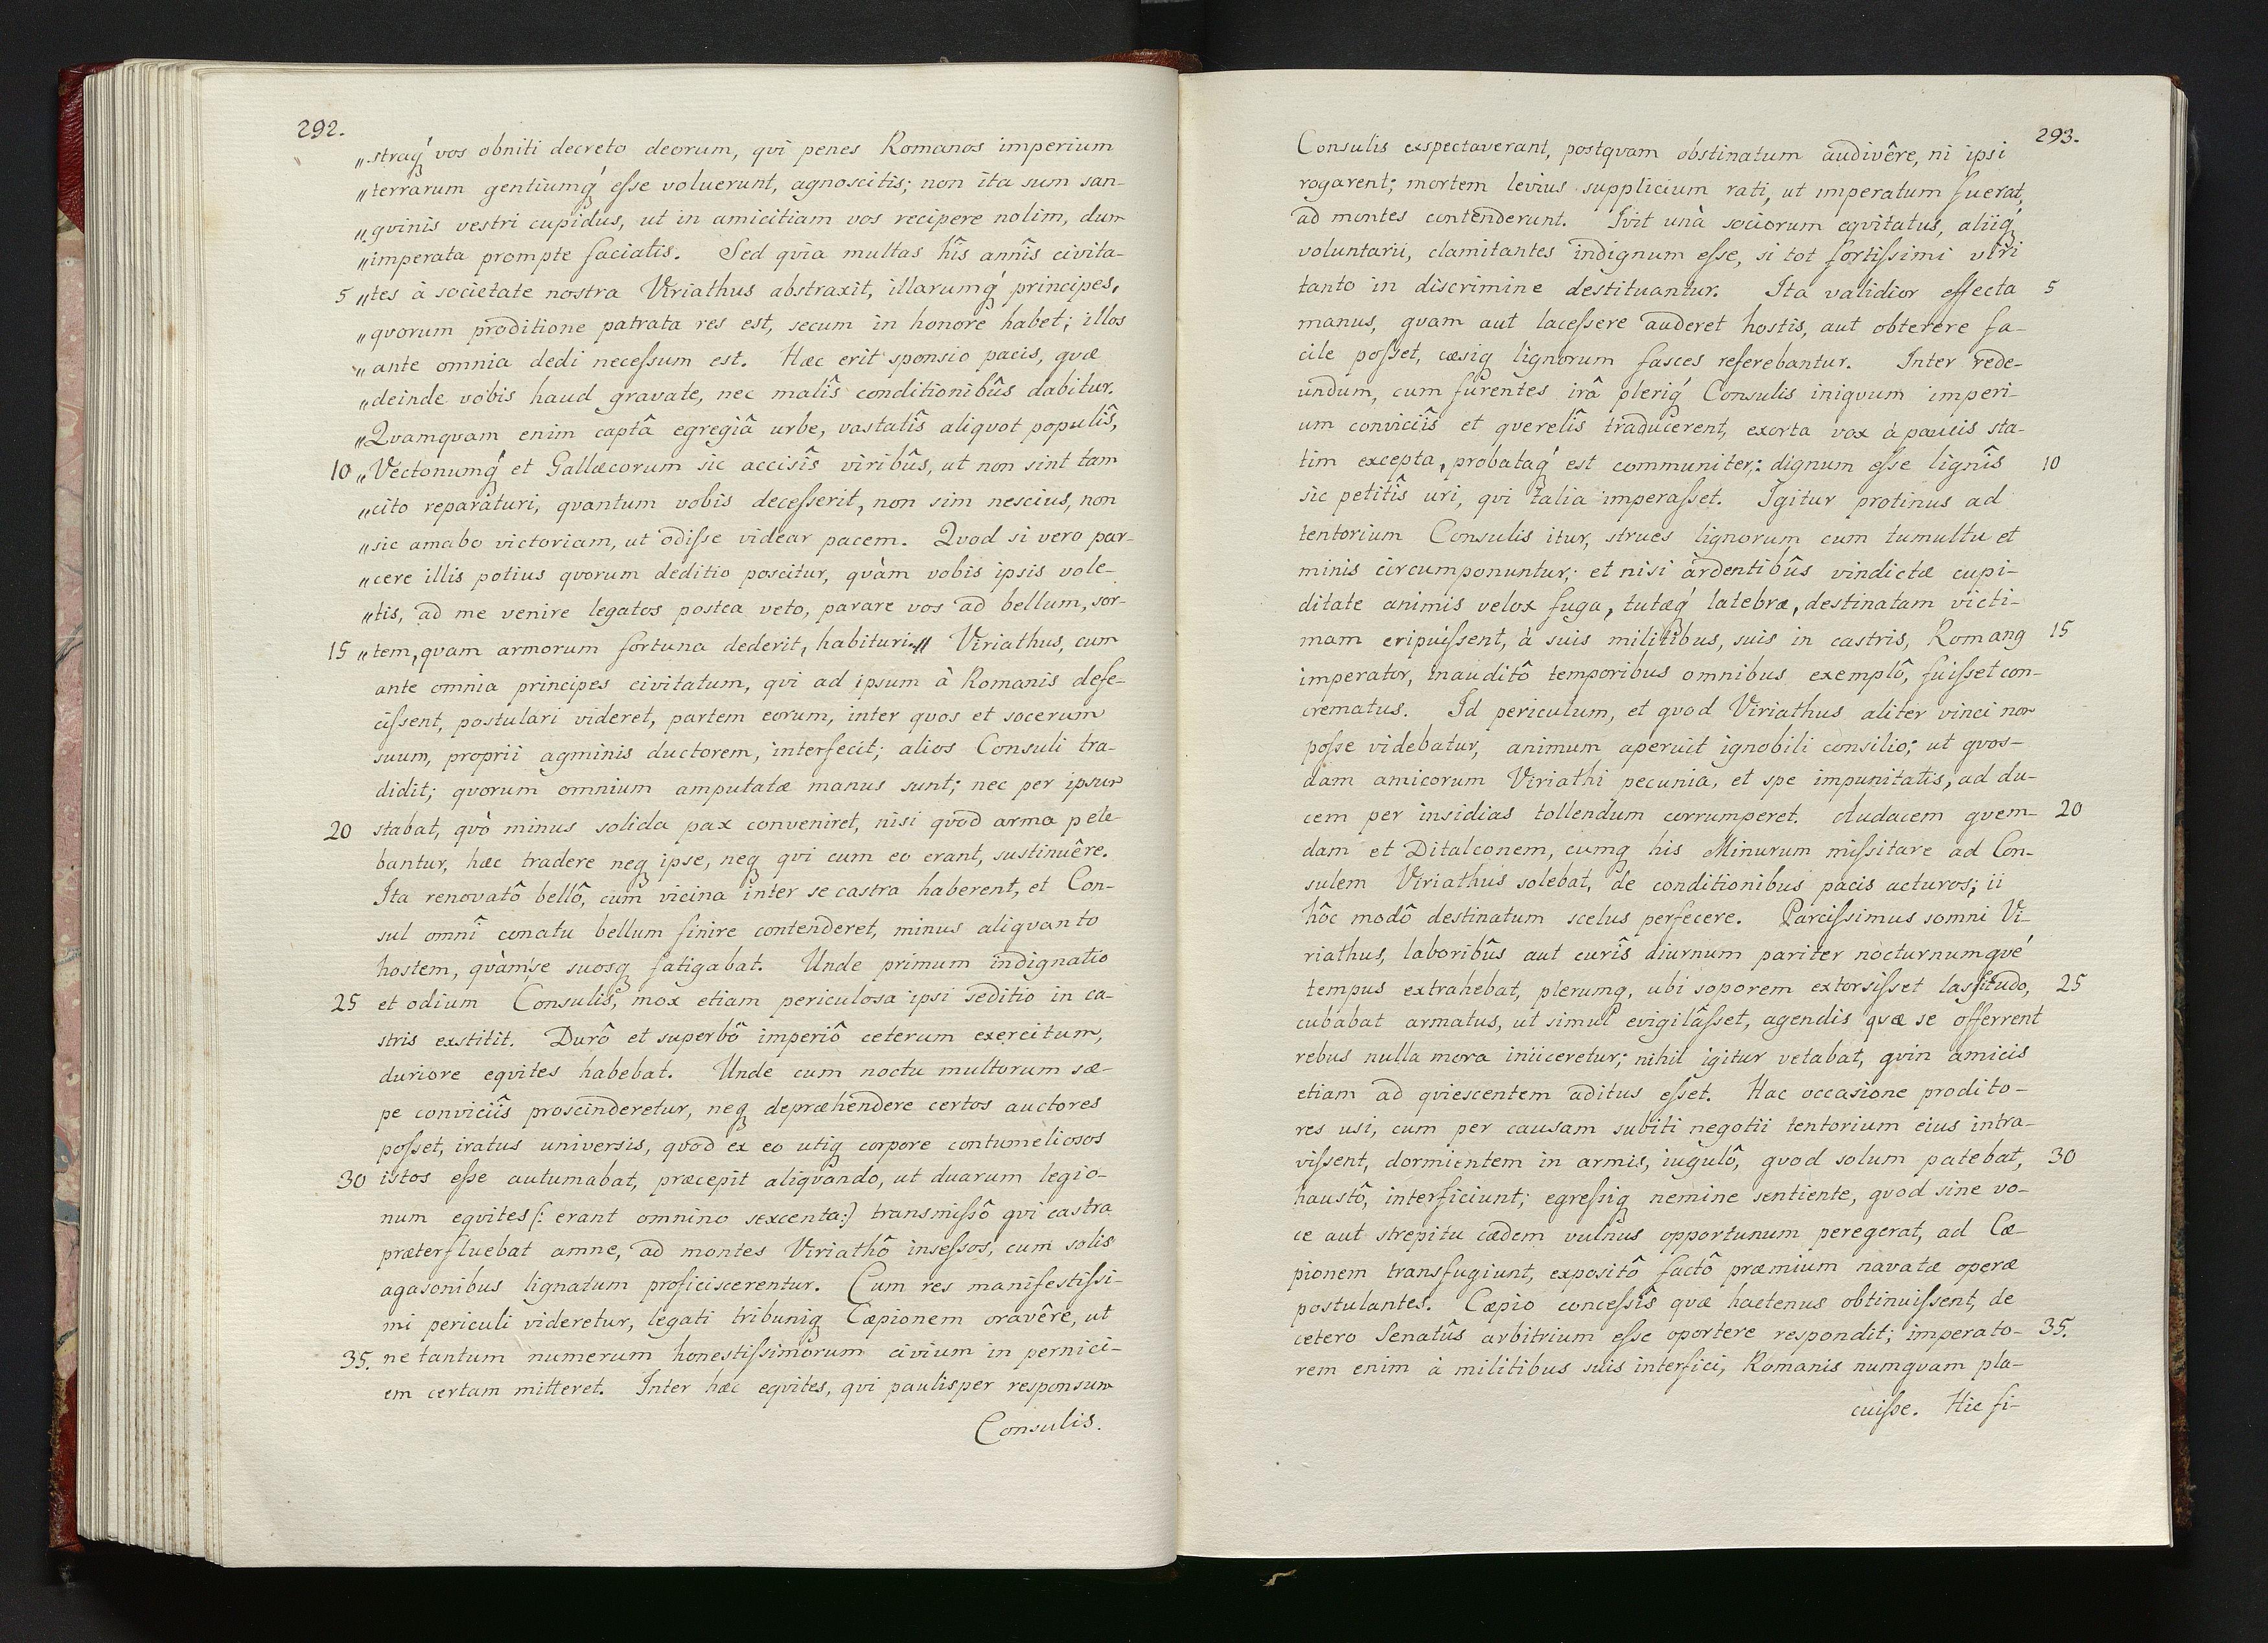 292.
„straq́ vos obniti decreto deorum, qvi penes Romanos imperium
„terrarum gentiumq́ eſse voluerunt, agnoscitis; non ita sum san-
„gvinis vestri cupidus, ut in amicitiam vos recipere nolim, dum
„imperata prompte faciatis. Sed qvia multas hîs annîs civita-
5 „tes à societate nostra Viriathus abstraxit, illarumq́ principes,
„qvorum proditione patrata res est, secum in honore habet; illos
„ante omnia dedi neceſsum est. Hæc erit sponsio pacis, qvæ
„deinde vobis haud gravate, nec malîs conditionibûs dabitur.
„Qvamqvam enim captâ egregiâ urbe, vastatîs aliqvot populîs,
10 „Vectonumq́ et Gallæcorum sic accisîs viribûs, ut non sint tam
„cito reparaturi, qvantum vobis deceſserit, non sim nescius, non
„sic amabo victoriam, ut odiſse videar pacem. Qvod si vero par-
„cere illis potius qvorum deditio poscitur, qvàm vobis ipsis vole-
„tis, ad me venire legatos postea veto, parare vos ad bellum, sor-
15 „tem, qvam armorum fortuna dederit, habituri.„ Viriathus, cum
ante omnia principes civitatum, qvi ad ipsum à Romanis defe-
ciſsent, postulari videret, partem eorum, inter qvos et socerum
suum, proprii agminis ductorem, interfecit; alios Consuli tra-
didit; qvorum omnium amputatæ manus sunt; nec per ipsum
20 stabat, qvò minus solida pax conveniret, nisi qvod arma pete-
bantur, hæc tradere neq ipse, neq qvi cum eo erant, sustinuêre.
Ita renovatô bellô, cum vicina inter se castra haberent, et Con-
sul omnî conatu bellum finire contenderet, minus aliqvanto
hostem, qvàm se suosq fatigabat. Unde primum indignatio
25 et odium Consulis, mox etiam periculosa ipsi seditio in ca-
stris exstitit. Durô et superbô imperiô ceterum exercitum,
duriore eqvites habebat. Unde cum noctu multorum sæ-
pe conviciîs proscinderetur, neq depræhendere certos auctores
poſset, iratus universis, qvod ex eo utiq corpore contumeliosos
30 istos eſse autumabat, præcepit aliqvando, ut duarum legio-
num eqvites (: erant omnino sexcenta:) transmiſsô qvi castra
præterfluebat amne, ad montes Viriathô inseſsos, cum solis
agasonibus lignatum proficiscerentur. Cum res manifestiſsi-
mi periculi videretur, legati tribuniq Cæpionem oravêre, ut
35. ne tantum numerum honestiſsimorum civium in pernici-
em certam mitteret. Inter hæc eqvites, qvi paulisper responsum
Consulis.
293.
Consulis exspectaverant, postqvam obstinatum audivêre, ni ipsi
rogarent; mortem levius supplicium rati, ut imperatum fuerat,
ad montes contenderunt. Ivit unà sociorum eqvitatus, aliiq́
voluntarii, clamitantes indignum eſse, si tot fortiſsimi viri
tanto in discrimine destituantur. Ita validior effecta 5
manus, qvam aut laceſsere auderet hostis, aut obterere fa-
cile poſset, cæsiq lignorum fasces referebantur. Inter rede-
undum, cum furentes irâ pleriq́ Consulis iniqvum imperi-
um conviciîs et qverelîs traducerent, exorta vox à paucis sta-
tim excepta, probataq́ est communiter,: dignum eſse lignîs 10
sic petitîs uri, qvi talia imperaſset. Igitur protinus ad
tentorium Consulis itur, strues lignorum cum tumultu et
minis circumponuntur; et nisi ardentibûs vindictæ cupi-
ditate animis velox fuga, tutæq́ latebræ, destinatam victi-
mam eripuiſsent, à suis militibus, suis in castris, Romanq 15
imperator, inauditô temporibus omnibus exemplô, fuiſset con-
crematus. Id periculum, et qvod Viriathus aliter vinci non
poſse videbatur, animum aperuit ignobili consilio; ut qvos-
dam amicorum Viriathi pecunia, et spe impunitatis, ad du-
cem per insidias tollendum corrumperet. Audacem qvem- 20
dam et Ditalconem, cumq his Minurum miſsitare ad Con-
sulem Viriathus solebat, de conditionibus pacis acturos; ii
hôc modô destinatum scelus perfecere. Parciſsimus somni Vi-
riathus, laboribûs aut curîs diurnum pariter nocturnumqvé
tempus extrahebat, plerumq, ubi soporem extorsiſset laſsitudo, 25
cubabat armatus, ut simul evigilâſset, agendis qvæ se offerrent
rebus nulla mora iniiceretur; nihil igitur vetabat, qvin amicis
etiam ad qviescentem aditus eſset. Hac occasione prodito-
res usi, cum per causam subiti negotii tentorium eius intra-
viſsent, dormientem in armis, iugulô, qvod solum patebat, 30
haustô, interficiunt; egreſsiq nemine sentiente, qvod sine vo-
ce aut strepitu cædem vulnus opportunum peregerat, ad Cæ-
pionem transfugiunt, expositô factô præmium navatæ operæ
postulantes. Cæpio conceſsîs qvæ hactenus obtinuiſsent, de
cetero Senatûs arbitrium eſse oportere respondit; imperato- 35.
rem enim à militibus suis interfici, Romanis numqvam pla-
cuiſse. Hic fi-